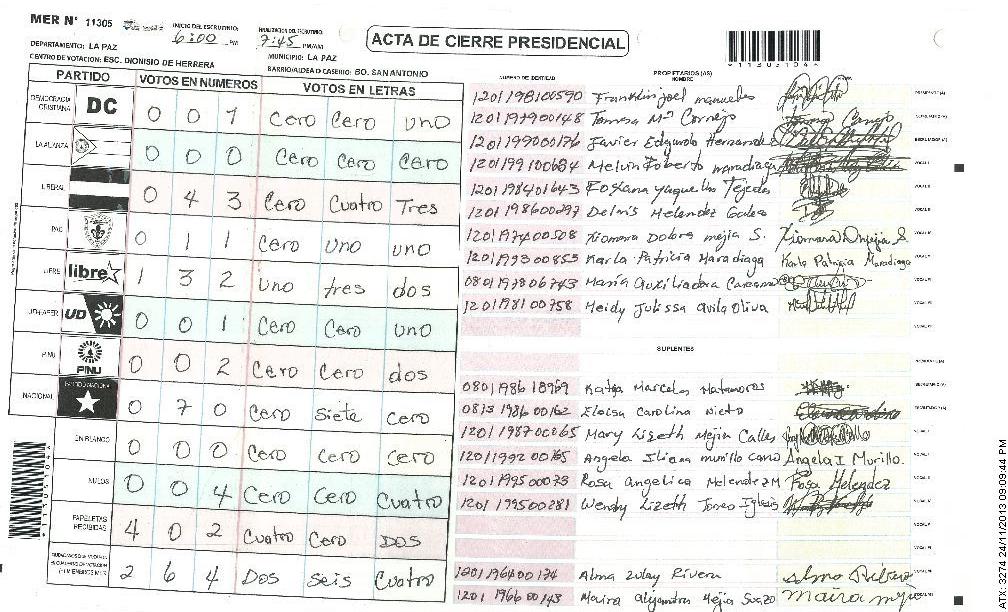 MER Nº 11305
INICIO DEL ESCRUTINIO: 6:00 PM
FINALIZACION DEL ESCRUTINIO: 7:45 PM/AM
ACTA DE CIERRE PRESIDENCIAL
DEPARTAMENTO: LA PAZ
MUNICIPIO: LA PAZ
CENTRO DE VOTACION: ESC. DIONISIO DE HERRERA
BARRIO/ALDEA O CASERIO: BO. SAN ANTONIO
PARTIDO VOTOS EN NUMEROS VOTOS EN LETRAS
DEMOCRACIA CRISTIANA DC 0 0 1 Cero Cero uno
LA ALIANZA 0 0 0 Cero Cero Cero
LIBERAL 0 4 3 Cero Cuatro Tres
PAC 0 1 1 Cero uno uno
LIBRE libre 1 3 2 uno tres dos
UD-FAPER UD 0 0 1 Cero Cero uno
PINU PINU 0 0 2 Cero Cero dos
NACIONAL 0 7 0 Cero siete Cero
EN BLANCO 0 0 0 Cero Cero Cero
NULOS 0 0 4 Cero Cero Cuatro
PAPELETAS RECIBIDAS 4 0 2 Cuatro Cero DOS
2 6 4 Dos seis Cuatro
NUMERO DE IDENTIDAD PROPIETARIOS (AS) NOMBRE
1201198100590 Franklin joel
1201197900148 Mª Cornejo
1201199000176 Javier Edgardo Hernande
1201199100684 Melvin Roberto maradiaga
1201198401643 Tejeda
1201198600297 Melendez
1201197400508 Xiomara mejia S.
1201199300853 Karla Patricia Maradiaga Karla Patricia Maradiaga
0801197806743 Maria Auxiliadora
1201198100758 Heidy Julissa avila Oliva
SUPLENTES
0801198618969 Marcela Matamoros
0813198600162 Eloisa Carolina Nieto
1201198700065 Mary Lizeth Mejia Calles
1201199200165 Angela Iliana murillo cano Angela I Murillo.
Rosa Angelica Melendez M Rosa Melendez
1201199500281 Wendy Lizeth
1201196400174 Alma Zulay Rivera
1201196600143 Maira Alejandra Mejia Suazo
1113051044
ATX-3274 24/11/2013 09:09:44 PM